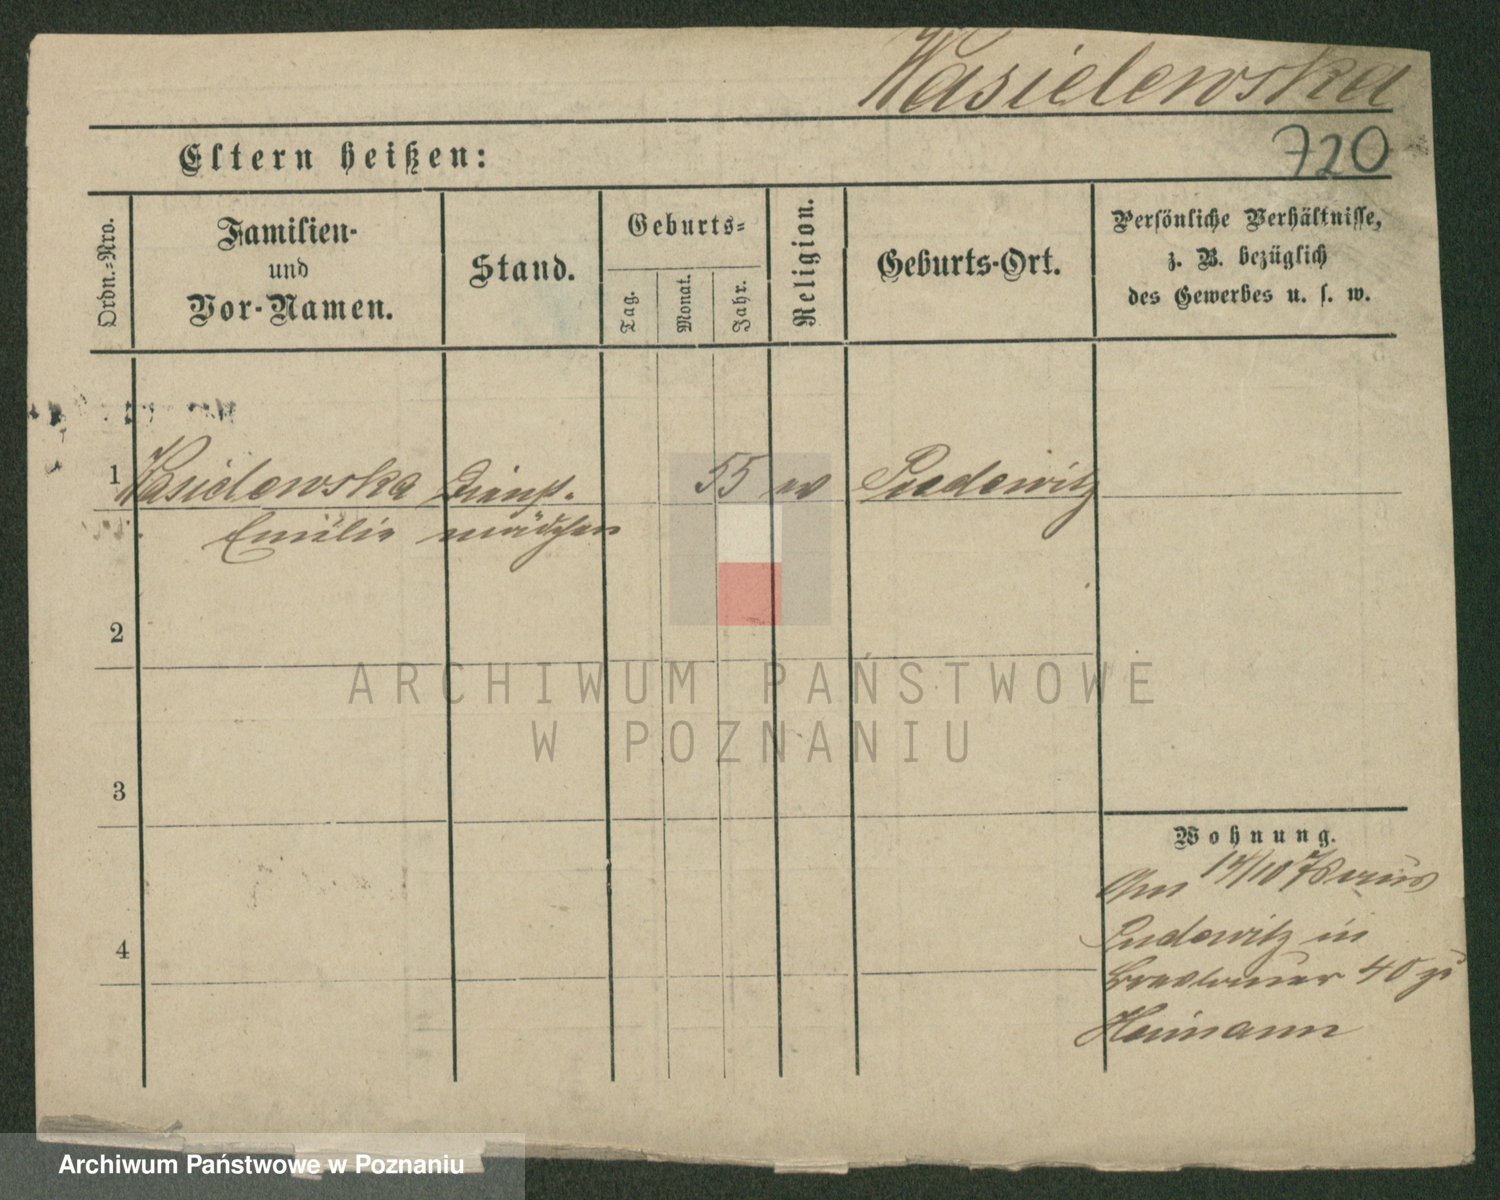 Wasielewska
720
Eltern heißen:
Ordn.-Nro.
Familien-
und
Vor-Namen.
Stand.
Geburts-
Tag.
Monat.
Jahr.
Religion.
Geburts-Ort.
Persönliche Verhältnisse,
z. B. bezüglich
des Gewerbes u. s. w.
1 Wasielewska Dienst- 55 Pudewitz
Emilie mädchen
2
3
4
Wohnung.
Am 14/10 78 aus
Pudewitz in
Breslauer 40 zu
Heimann
ARCHIWUM PAŃSTWOWE
W POZNANIU
Archiwum Państwowe w Poznaniu